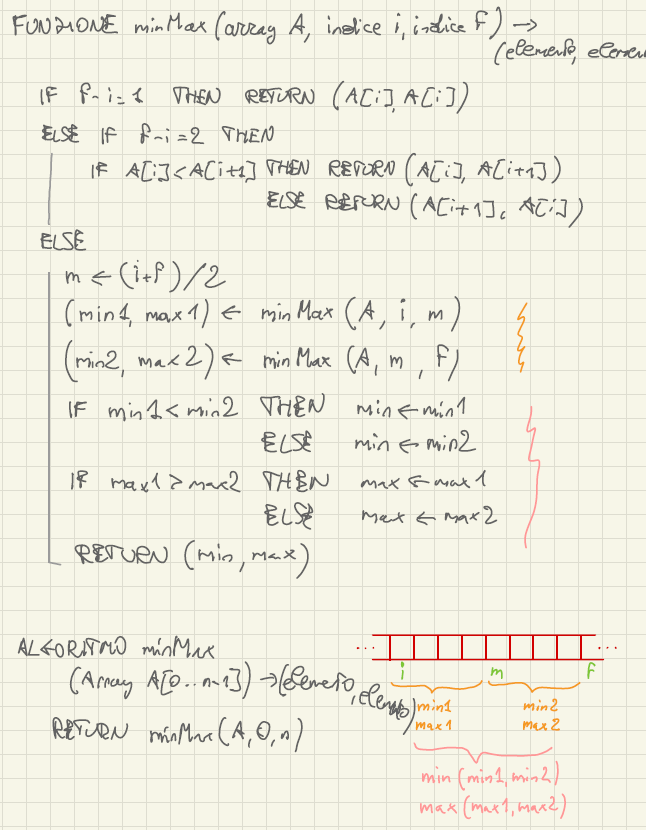 FUNZIONE minMax (array A, indice i, indice f) →
(elemento, elemen
IF f-i=1 THEN RETURN (A[i], A[i])
ELSE IF f-i=2 THEN
IF A[i]<A[i+1] THEN RETURN (A[i], A[i+1])
ELSE RETURN (A[i+1], A[i])
ELSE
m ← (i+f)/2
(min1, max1) ← minMax (A, i, m)
(min2, max2) ← minMax (A, m, f)
IF min1 < min2 THEN min ← min1
ELSE min ← min2
IF max1 > max2 THEN max ← max1
ELSE max ← max2
RETURN (min, max)
ALGORITMO minMax
(Array A[0..n-1]) → (elemento, elemento)
RETURN minMax (A, 0, n)
... ...
i m f
min1 min2
max1 max2
min (min1, min2)
max (max1, max2)